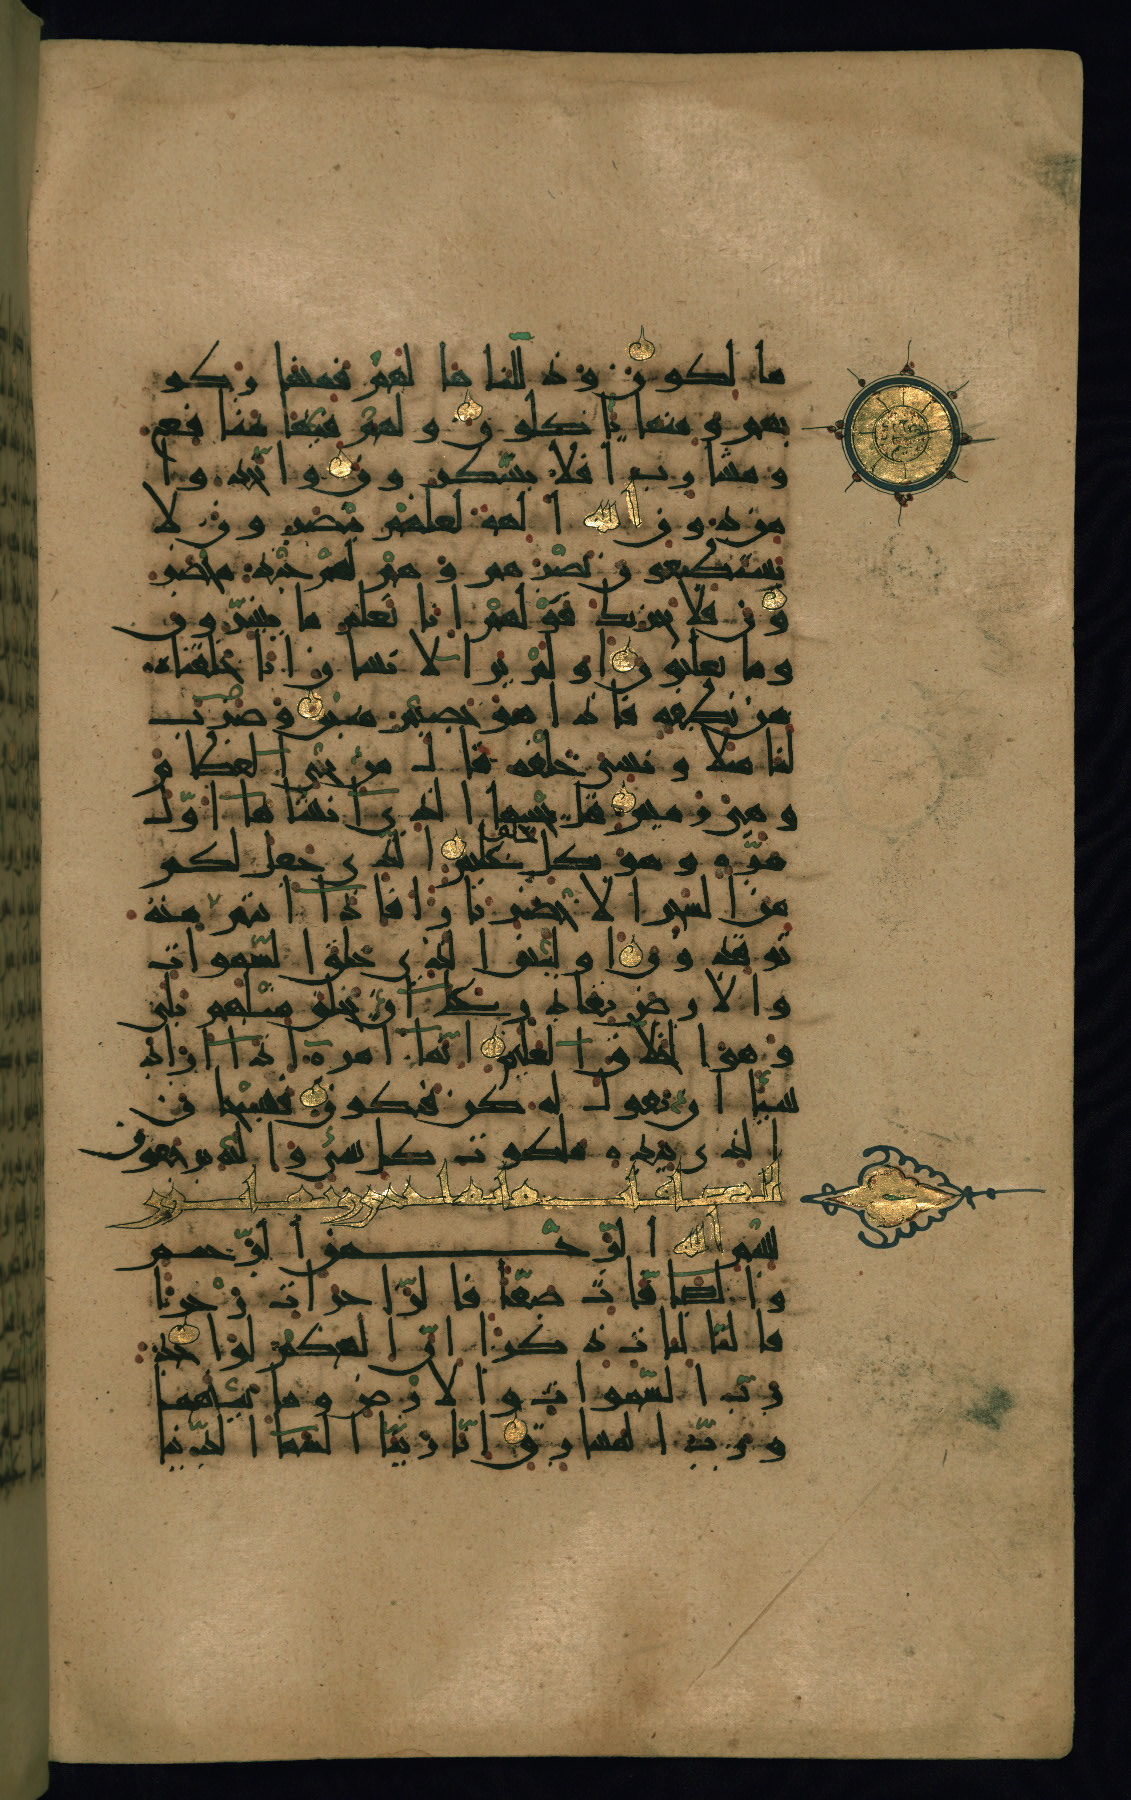 مالكون وذللناها لهم فمنها ركو
بهم ومنها يأكلون ولهم فيها منافع
ومشارب أفلا يشكرون واتخذوا
من دون الله آلهة لعلهم ينصرون لا
يستطيعون نصرهم وهم لهم جند محضر
ون فلا يحزنك قولهم إنا نعلم ما يسرون
وما يعلنون أولم ير الإنسان أنا خلقناه
من نطفة فإذا هو خصيم مبين وضرب
لنا مثلا ونسي خلقه قال من يحي العظام
وهي رميم قل يحييها الذي أنشأها أول
مرة وهو بكل خلق عليم الذي جعل لكم
من الشجر الأخضر نارا فإذا أنتم منه
توقدون أوليس الذي خلق السموات
والأرض بقادر على أن يخلق مثلهم بلى
وهو الخلاق العليم إنما أمره إذا أراد
شيئا أن يقول له كن فيكون فسبحان
الذي بيده ملكوت كل شيء وإليه ترجعون
الصافات
بسم الله الرحمن الرحيم
والصافات صفا فالزاجرات زجرا
فالتاليات ذكرا إن إلهكم لواحد
رب السموات والأرض وما بينهما
ورب المشارق إنا زينا السماء الدنيا